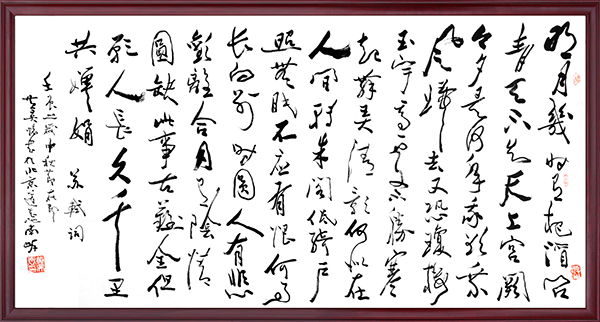 明月幾時有把酒問
青天不知天上宮闕
今夕是何年我欲乘
風歸去又恐瓊樓
玉宇高處不勝寒
起舞弄清影何似在
人間轉朱閣低綺戶
照無眠不應有恨何事
長向別時圓人有悲
歡離合月有陰晴
圓缺此事古難全但
願人長久千里
共嬋娟 蘇軾詞
壬辰之歲中秋節
書於北京